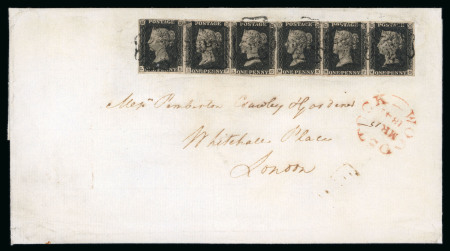 POSTAGE POSTAGE POSTAGE POSTAGE POSTAGE POSTAGE
ONE PENNY ONE PENNY ONE PENNY ONE PENNY ONE PENNY ONE PENNY
Messrs Pemberton Crawley & Gardiner
Whitehall Place
London
WOODSTOCK